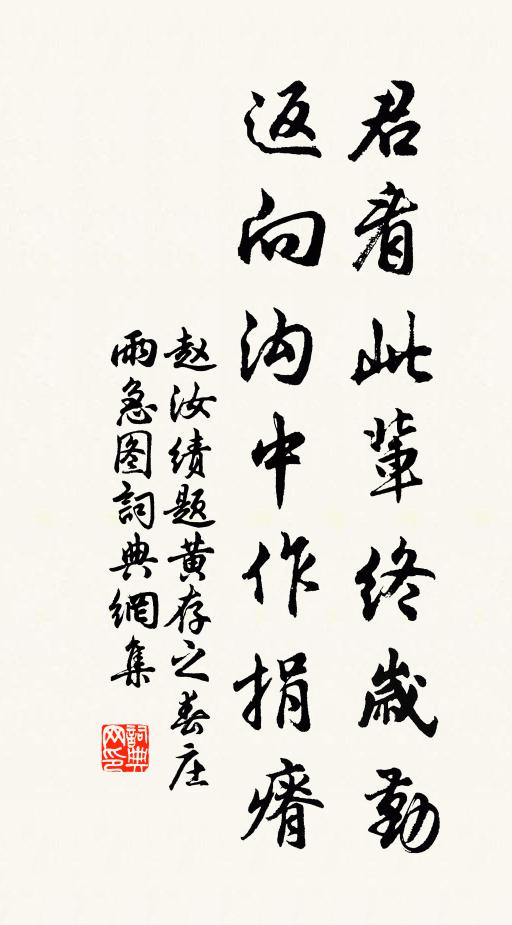 君看此輩終歲勤
返向沟中作捐瘠
赵汝绩题黄存之春庄
雨急图詞典網集
詞典
网印